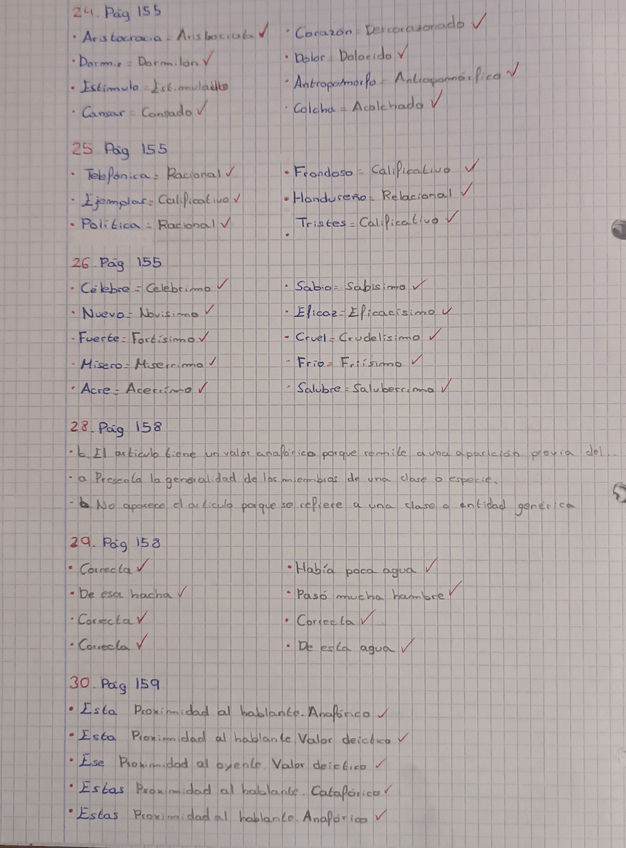 24. Pág 155
· Aristocracia = Aristócrata ✓
· Dormir = Dormilón ✓
· Estímulo = Estimulado
· Cansar = Cansado ✓
· Corazón = Descorazonado ✓
· Dolor = Dolorido ✓
· Antropomorfo = Antropomórfico ✓
· Colcha = Acolchado ✓
25 Pág 155
· Telefónica = Racional ✓
· Ejemplar = Calificativo ✓
· Política = Racional ✓
· Frondoso = Calificativo ✓
· Hondureño = Relacional ✓
· Tristes = Calificativo ✓
26. Pág 155
· Célebre = Celebrimo ✓
· Nuevo = Novisimo ✓
· Fuerte = Fortísimo ✓
· Misero = Miserrimo ✓
· Acre = Acerrimo ✓
· Sabio = Sabisimo ✓
· Eficaz = Eficacisimo ✓
· Cruel = Crudelisimo ✓
· Frio = Friísimo ✓
· Salubre = Saluberrimo ✓
28. Pág 158
· b El articulo tiene un valor anafórico porque remite a una aparición previa del...
· a Presenta la generalidad de los miembros de una clase o especie.
· b No aparece el articulo porque se refiere a una clase o entidad genérica
29. Pág 158
· Correcta ✓
· De esa hacha ✓
· Correcta ✓
· Correcta ✓
· Había poca agua ✓
· Pasó mucha hambre ✓
· Correcta ✓
· De esta agua ✓
30. Pág 159
· Esta Proximidad al hablante. Anafórico ✓
· Esta Proximidad al hablante. Valor deictico ✓
· Ese Proximidad al oyente. Valor deictico ✓
· Estas Proximidad al hablante. Catafórico ✓
· Estas Proximidad al hablante. Anafórico ✓